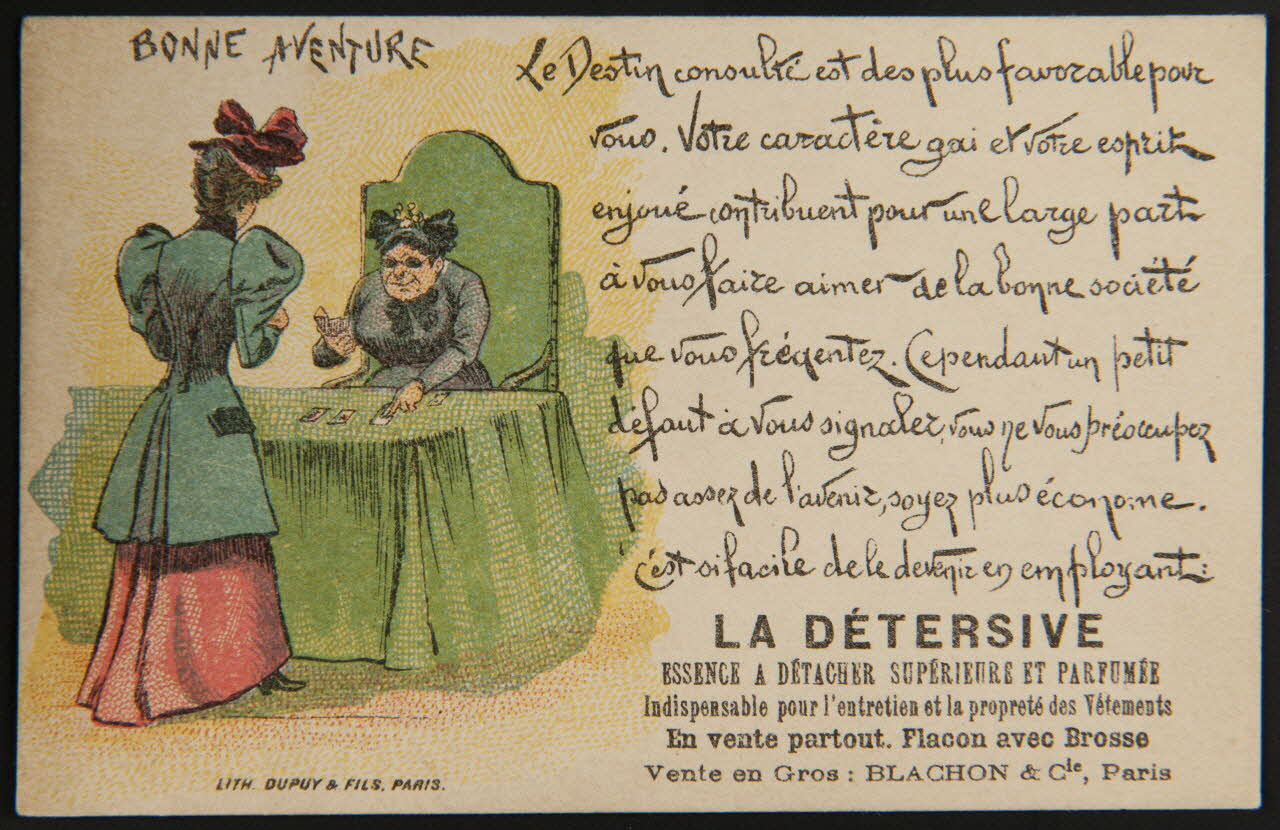 BONNE AVENTURE
Le Destin consulté est des plus favorable pour
vous. Votre caractère gai et votre esprit
enjoué contribuent pour une large part
à vous faire aimer de la bonne société
que vous fréqentez. Cependant un petit
défaut à vous signaler, vous ne vous préoccupez
pas assez de l'avenir, soyez plus économe.
c'est si facile de le devenir en employant:
LA DÉTERSIVE
ESSENCE A DÉTACHER SUPÉRIEURE ET PARFUMÉE
Indispensable pour l'entretien et la propreté des Vêtements
En vente partout. Flacon avec Brosse
Vente en Gros : BLACHON & Cie, Paris
LITH. DUPUY & FILS, PARIS.